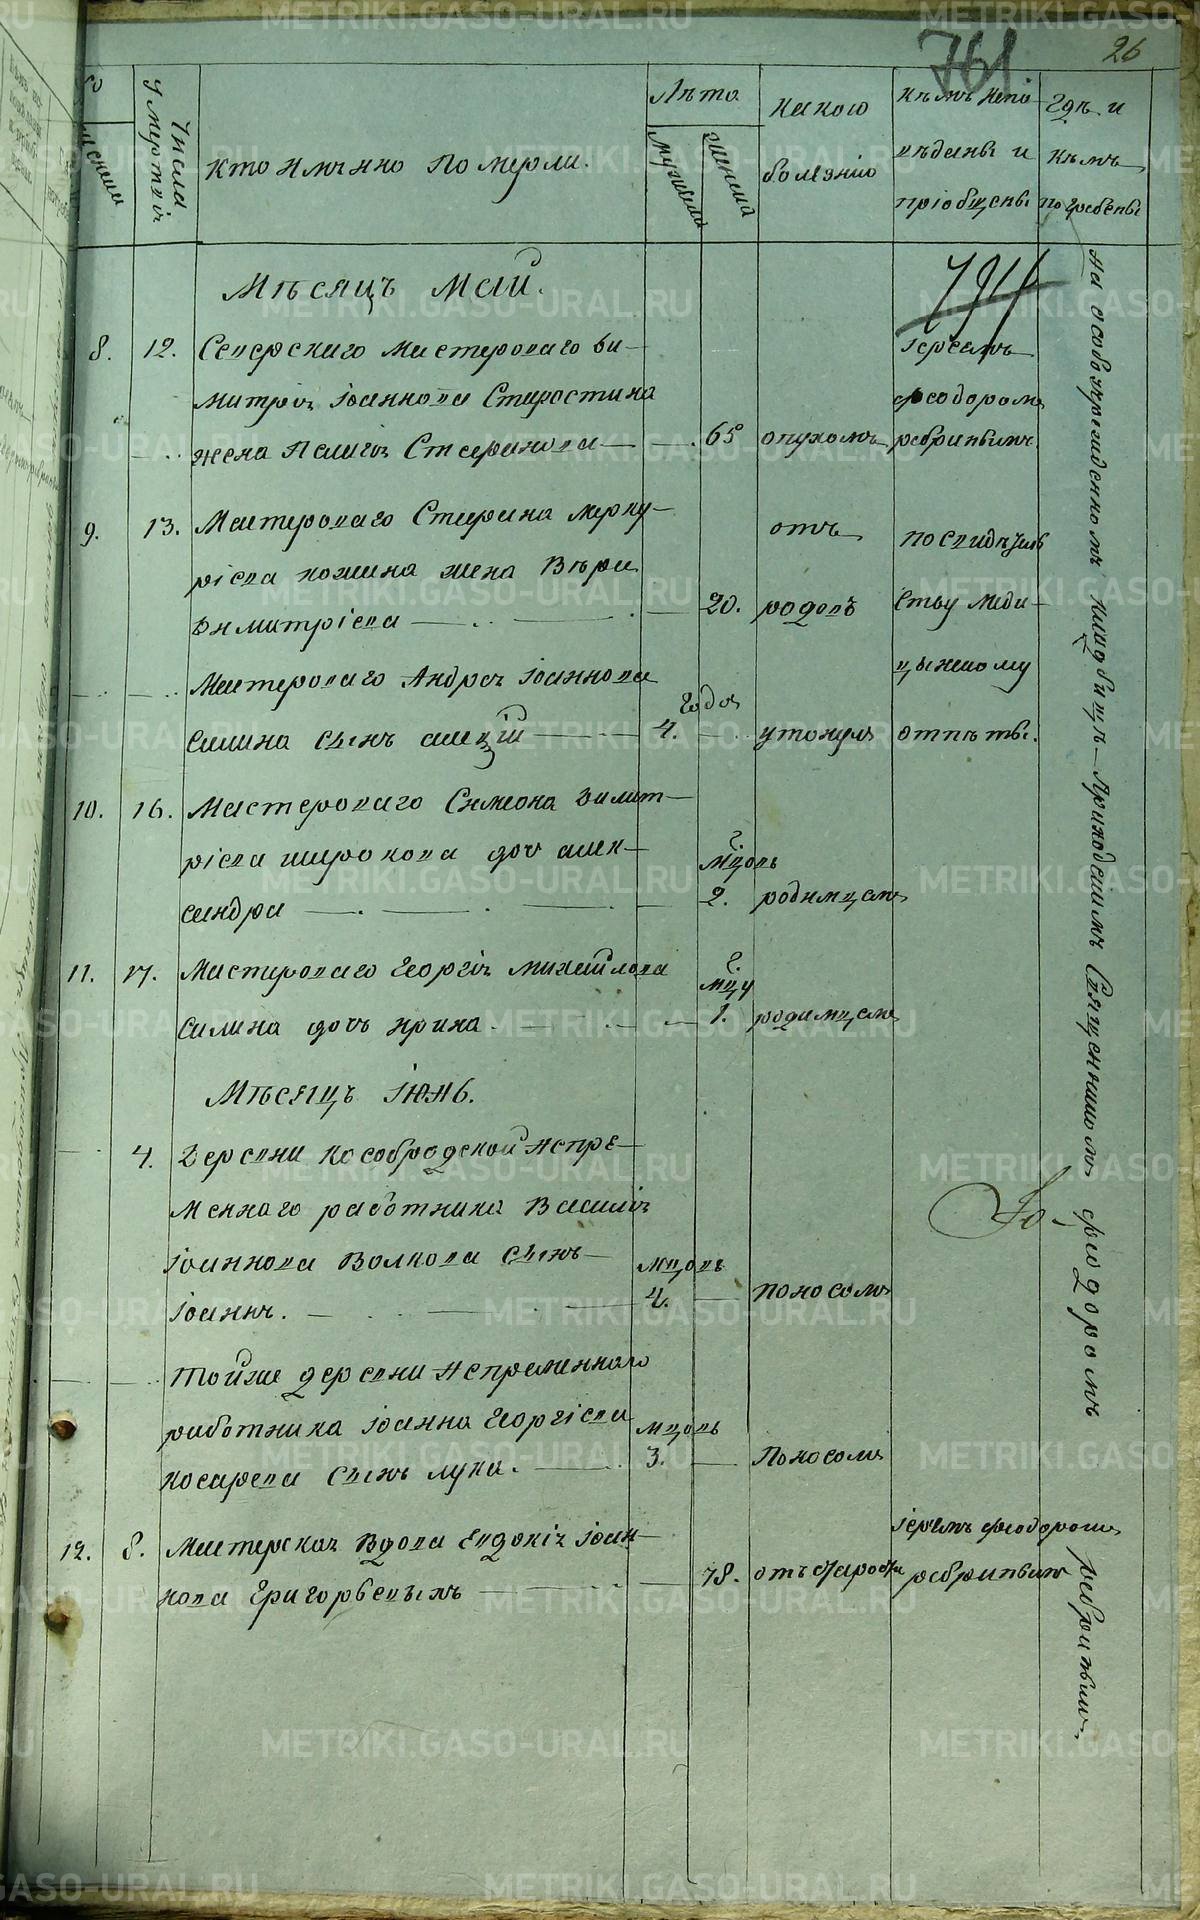 761
26
Числа
умертвій
Кто имянно померли.
Лѣта
мужеска
женска
Какою
болезнію
Кѣмъ испо
вѣданы и
пріобщены
Гдѣ и
кѣмъ
погребены
Мѣсяцъ Маій.
8. 12. Северскаго мастероваго Ди-
митрія Іоаннова Старостина
жена Пелагія Стефанова 65 опухомъ
Іереемъ
Феодоромъ
9. 13. Мастероваго Стефана Мерку-
ріева жена Вѣра
Димитріева 20. отъ родовъ
по свидѣтель
ству меди-
цынскому
отпѣты.
Мастероваго Андрея Іоаннова
Силина сынъ Алеѯій годъ 4. утонулъ
10. 16. Мастероваго Симеона Димит-
ріева Широкова дочь Алек-
сандра мцовъ 2. родимцемъ
11. 17. Мастероваго Георгія Михайлова
Силина дочь Ирина мцу 1. родимцемъ
Мѣсяцъ Іюнь.
4. Деревни Кособродской Непре-
меннаго работника Василія
Іоаннова Волкова сынъ
Іоаннъ. мцовъ 4. поносомъ
Той же деревни Непременнаго
работника Іоанна Георгіева
Косарева сынъ Лука. мцовъ 3. поносомъ
12. 8. Мастерская вдова Евдокія Іоан-
нова Григорьевыхъ 78. отъ старости
Іереемъ Феодоромъ
На особокрежденномъ кладбищѣ Приходскимъ Священникомъ Феодоромъ